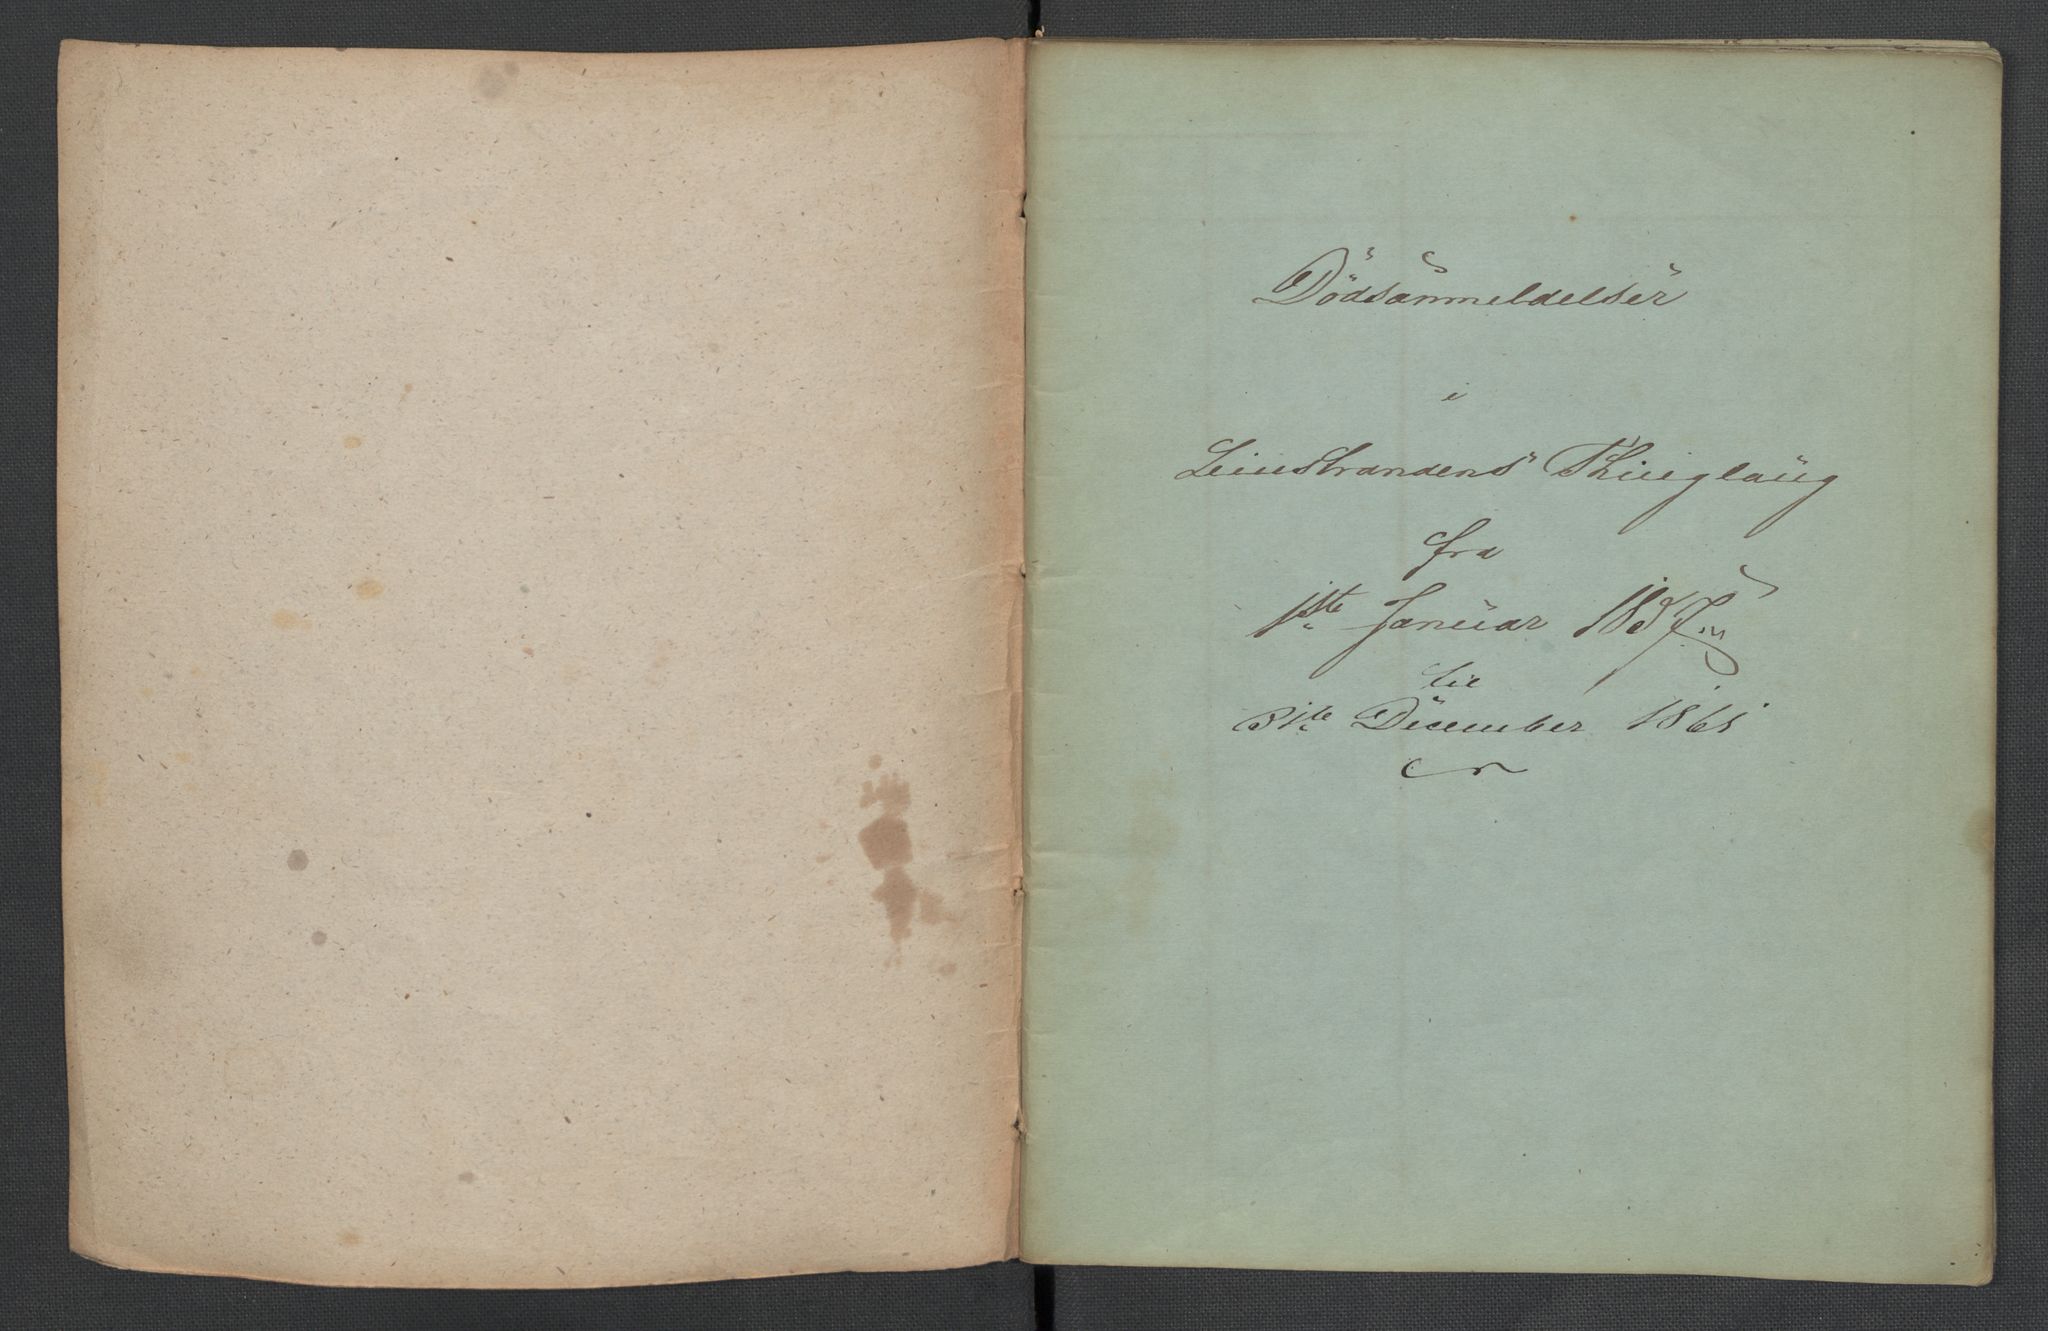 Dödsanmeldelser
i
Leinstrandens Thinglaug
fra
1ste Januar 1857
til
31te December 1861